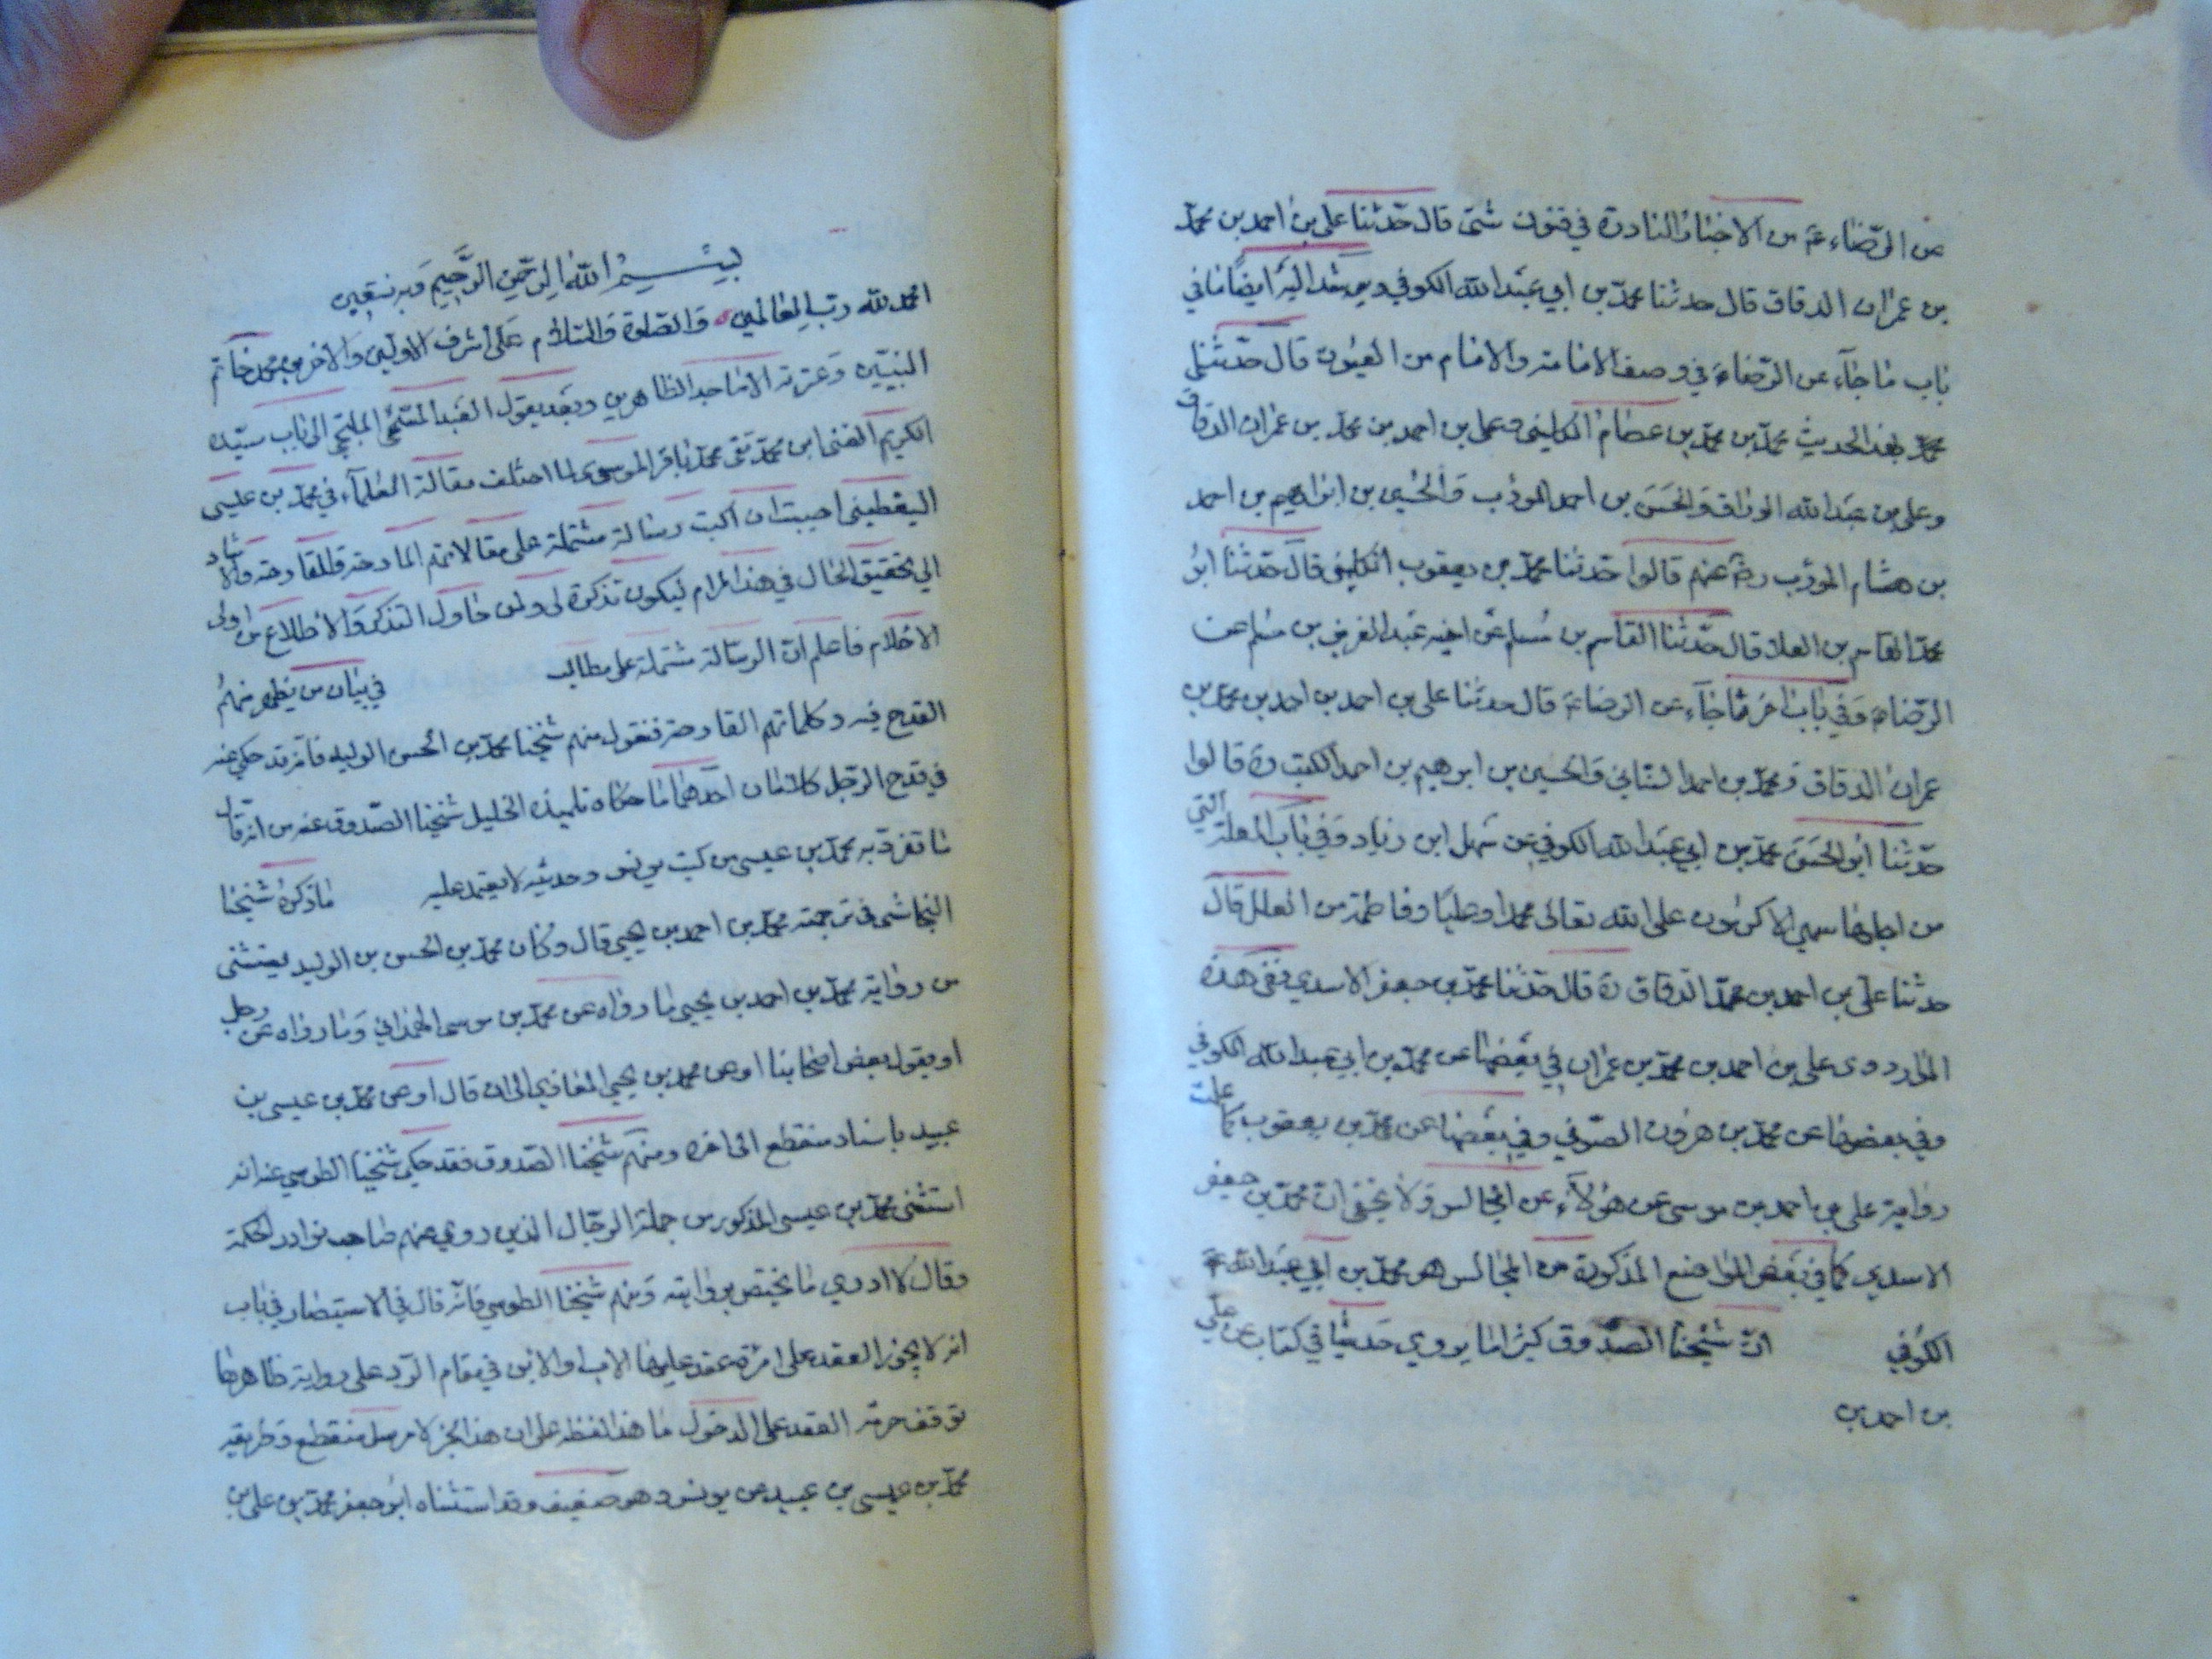 عن الرضاء ع من الاخبار النادرة في فنون شتى قال حدثنا علي بن احمد بن محمد
بن عمران الدقاق قال حدثنا محمد بن ابي عبد الله الكوفي ويرشد اليه ايضا ما في
باب ما جاء عن الرضاء ع في وصف الامامة والامام من العيون قال حدثنا
محمد بهذا الحديث محمد بن محمد بن عصام الكليني وعلي بن احمد بن محمد بن عمران الدقاق
وعلي بن عبد الله الوراق والحسن بن احمد المودب والحسين بن ابراهيم بن احمد
بن هشام المودب رض عنهم قالوا حدثنا محمد بن يعقوب الكليني قال حدثنا ابو
محمد القاسم بن العلا قال حدثنا القاسم بن مسلم عن اخيه عبد العزيز بن مسلم عن
الرضاء ع وفي باب اخر فما جاء عن الرضا ع قال حدثنا علي بن احمد بن محمد بن
عمران الدقاق ومحمد بن احمد السناني والحسين بن ابرهيم بن احمد المكتب ره قالوا
حدثنا ابو الحسن محمد بن ابي عبد الله الكوفي عن سهل ابن زياد وفي باب العلة التي
من اجلها سمي الاكرمون على الله تعالى محمدا وعليا وفاطمة من العلل قال
حدثنا علي بن احمد بن محمد الدقاق ره قال حدثنا محمد بن جعفر الاسدي ففي هذه
الموارد روى علي بن احمد بن محمد بن عمران في بعضها عن محمد بن ابي عبد الله الكوفي
وفي بعضها عن محمد بن هرون الصوفي وفي بعضها عن محمد بن يعقوب كما علمت
رواية علي بن احمد بن موسى عن هؤلاء عن المجالس ولا يخفى ان محمد بن جعفر
الاسدي كما في بعض المواضع المذكورة من المجالس هو محمد بن ابي عبد الله
الكوفي ان شيخنا الصدوق كثيرا ما يروي حديثا في كتاب عن علي
بن احمد بن
بسم الله الرحمن الرحيم وبه نستعين
الحمد لله رب العالمين والصلوة والسلام على اشرف الاولين والاخرين محمد خاتم
النبيين وعترته الاماجد الطاهرين وبعد يقول العبد الملتجى الى باب سيده
الكريم الغنى ابن محمد تقى محمد باقر الموسوى لما اختلف مقالة العلماء في محمد بن عيسى
اليقطينى احببت ان اكتب رسالة مشتملة على مقالاتهم المادحة والقادحة والارشاد
الى تحقيق الحال في هذا المرام ليكون تذكرة لى ولمن حاول التذكر والاطلاع من اولى
الاحلام فاعلم ان الرسالة مشتملة على مطالب في بيان من يظهر منهم
القدح فيه وكلماتهم القادحة فنقول منهم شيخنا محمد بن الحسن الوليد فانه قد حكي عنه
في قدح الرجل كلامان احدهما ما حكاه تلميذه الجليل شيخنا الصدوق عنه من انه قال
ما تفرد به محمد بن عيسى من كتب يونس وحديثه لا يعتمد عليه ما ذكره شيخنا
النجاشى في ترجمة محمد بن احمد بن يحيى قال وكان محمد بن الحسن بن الوليد يستثنى
من رواية محمد بن احمد بن يحيى ما رواه عن محمد بن موسى الهمداني وما رواه عن رجل
او يقول بعض اصحابنا او عن محمد بن يحيى المعاذي الى ان قال او عن محمد بن عيسى بن
عبيد باسناد منقطع الى اخره ومنهم شيخنا الصدوق فقد حكى شيخنا الطوسي عنه انه
استثنى محمد بن عيسى المذكور من جملة الرجال الذين روي عنهم صاحب نوادر الحكمة
وقال لا اروي ما يختص بروايته ومنهم شيخنا الطوسي فانه قال في الاستبصار في باب
انه لا يجوز العقد على امرئة عقد عليها الاب او الابن في مقام الرد على رواية ظاهرها
توقف حرمة العقد على الدخول ما هذا لفظه على ان هذا الخبر مرسل منقطع وطريقه
محمد بن عيسى بن عبيد عن يونس وهو ضعيف وقد استثناه ابو جعفر محمد بن علي بن